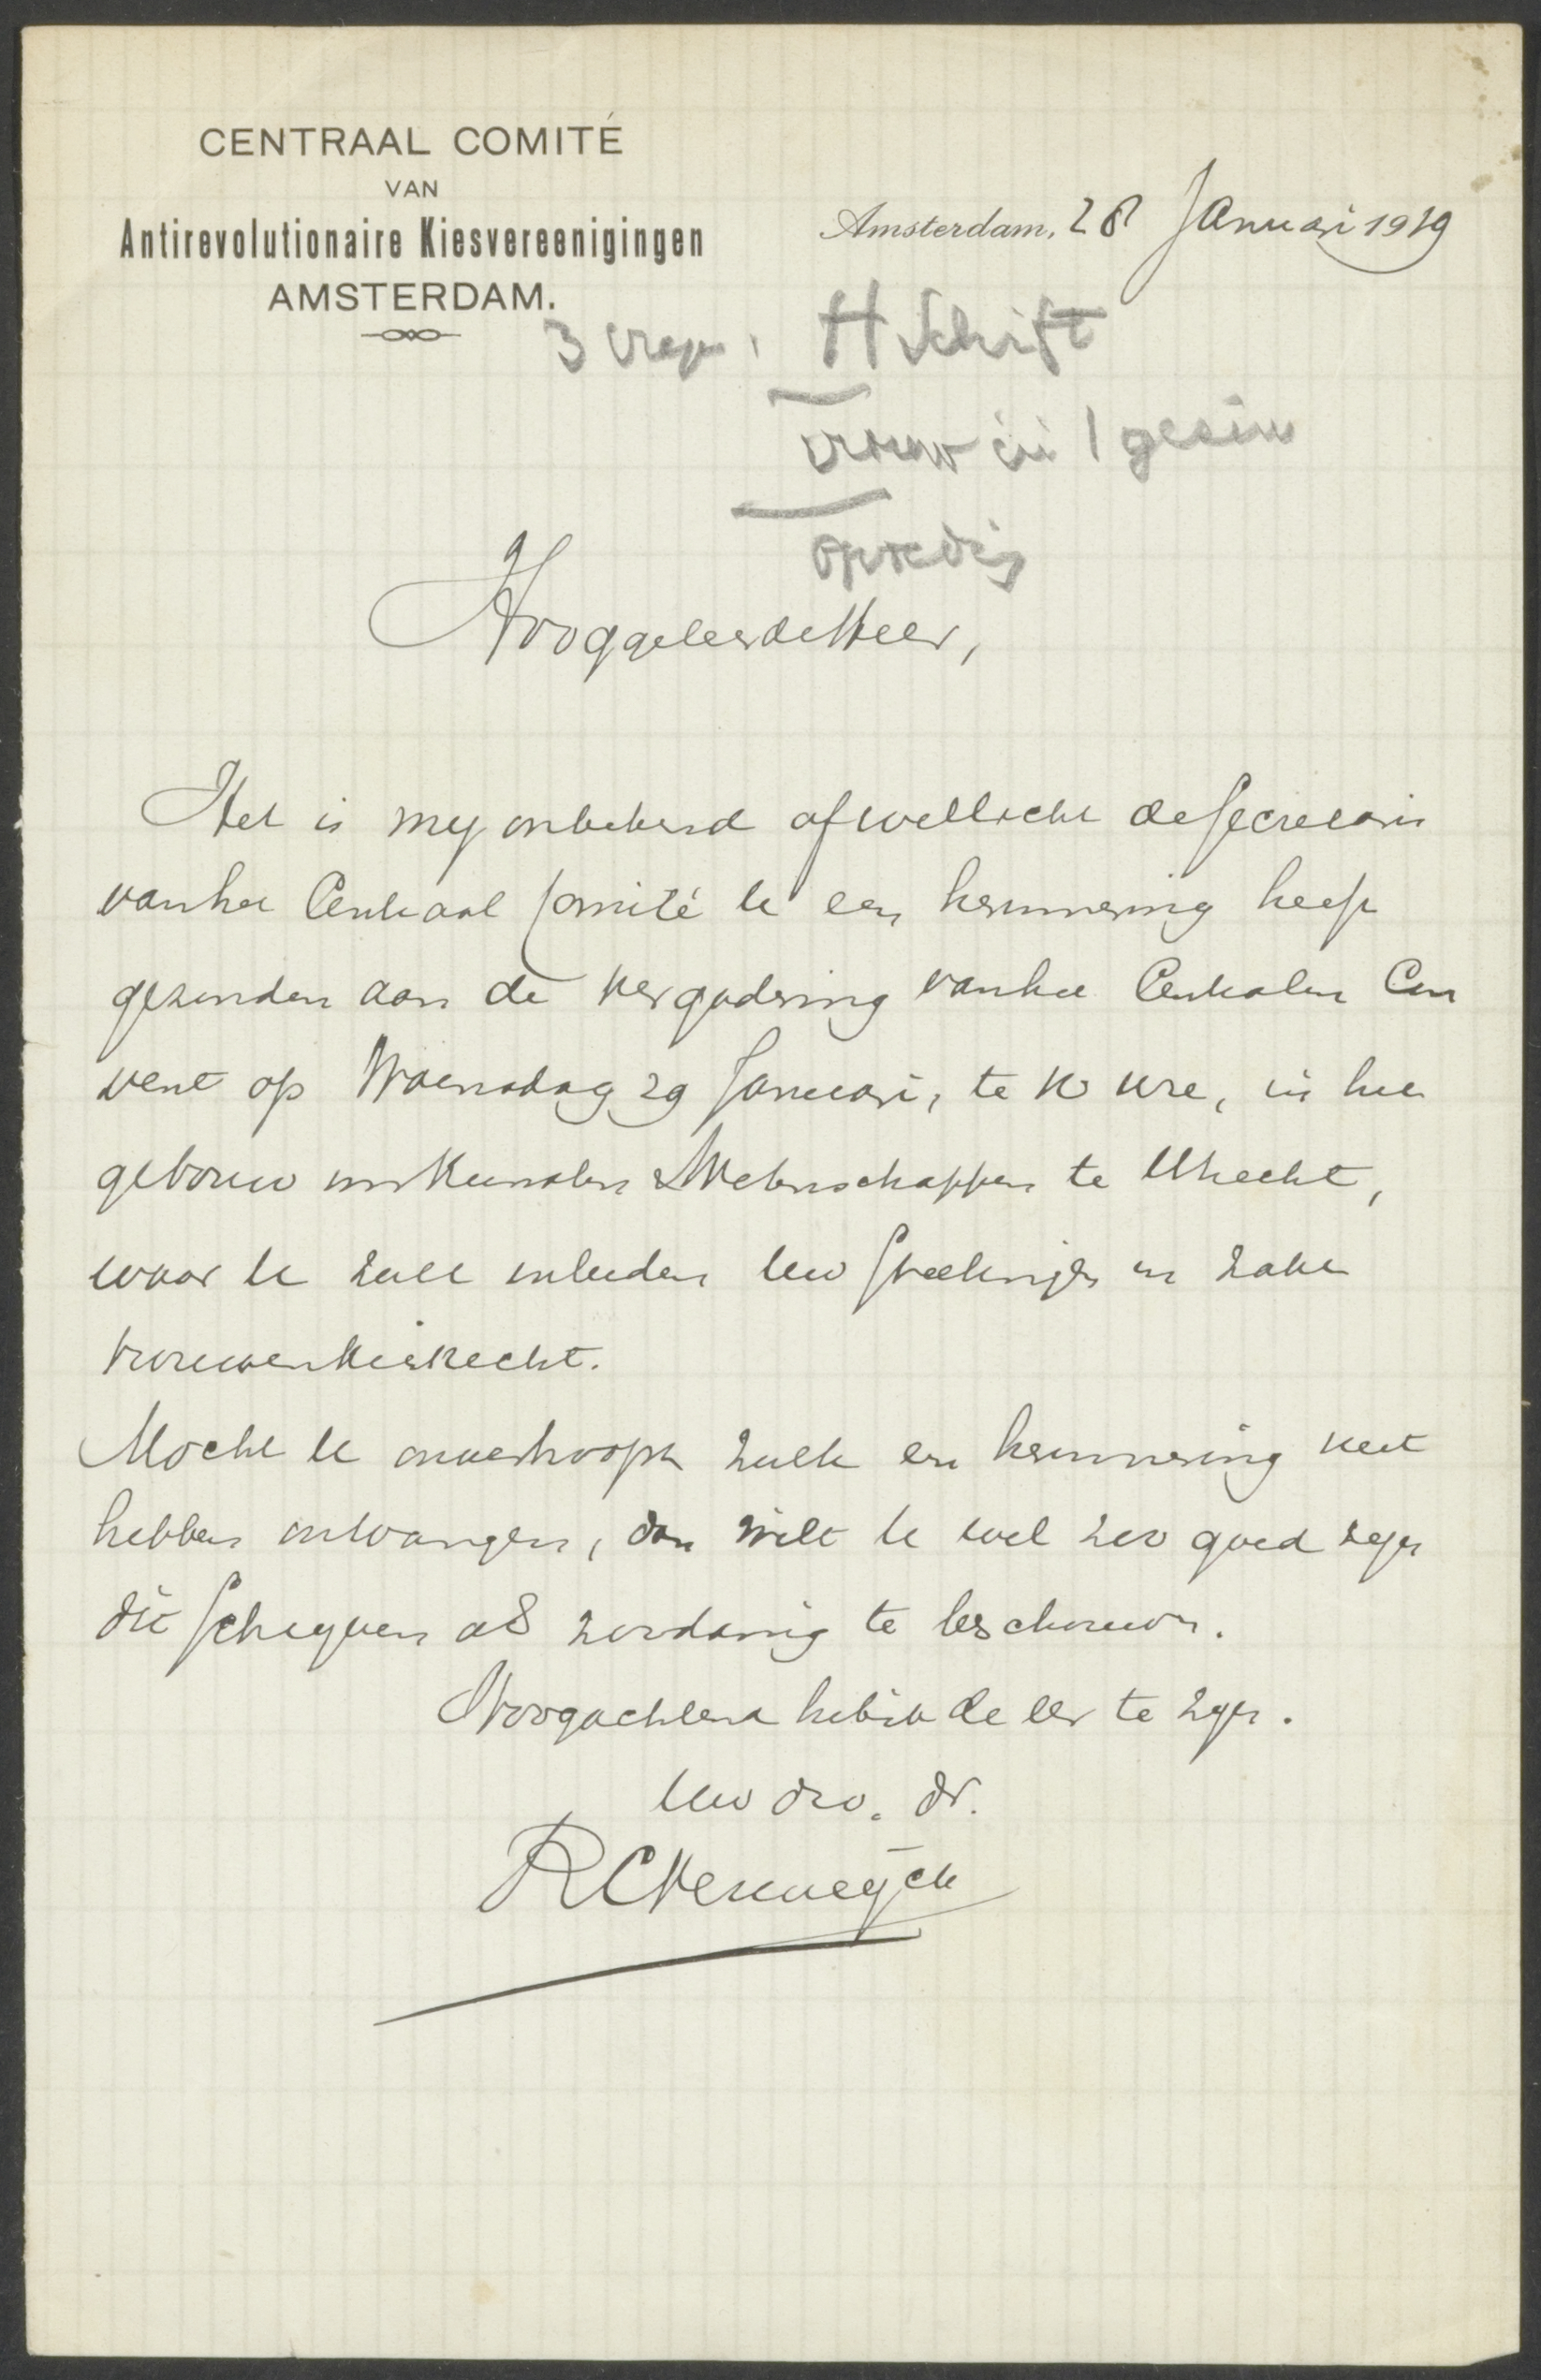 CENTRAAL COMITÉ
VAN
Antirevolutionaire Kiesvereenigingen
AMSTERDAM.
Amsterdam, 28 Januari 1919
3 vragen: H Schrift
vrouw in 't gezin
opvoeding
Hooggeleerde Heer,
Het is mij onbekend of wellicht de secretaris
van het Centraal Comité U een herinnering heeft
gezonden aan de vergadering van het Centralen Con
vent op Woensdag 29 Januari, te 10 ure, in het
gebouw van Kunsten & Wetenschappen te Utrecht,
waar U zult inleiden Uw stellingen in zake
vrouwenkiesrecht.
Mocht U onverhoopt zulk een herinnering niet
hebben ontvangen, dan wilt U wel zoo goed zijn
dit schrijven als zoodanig te beschouwen.
Hoogachtend heb ik de eer te zijn.
Uw dw. dr.
R C Verweyck